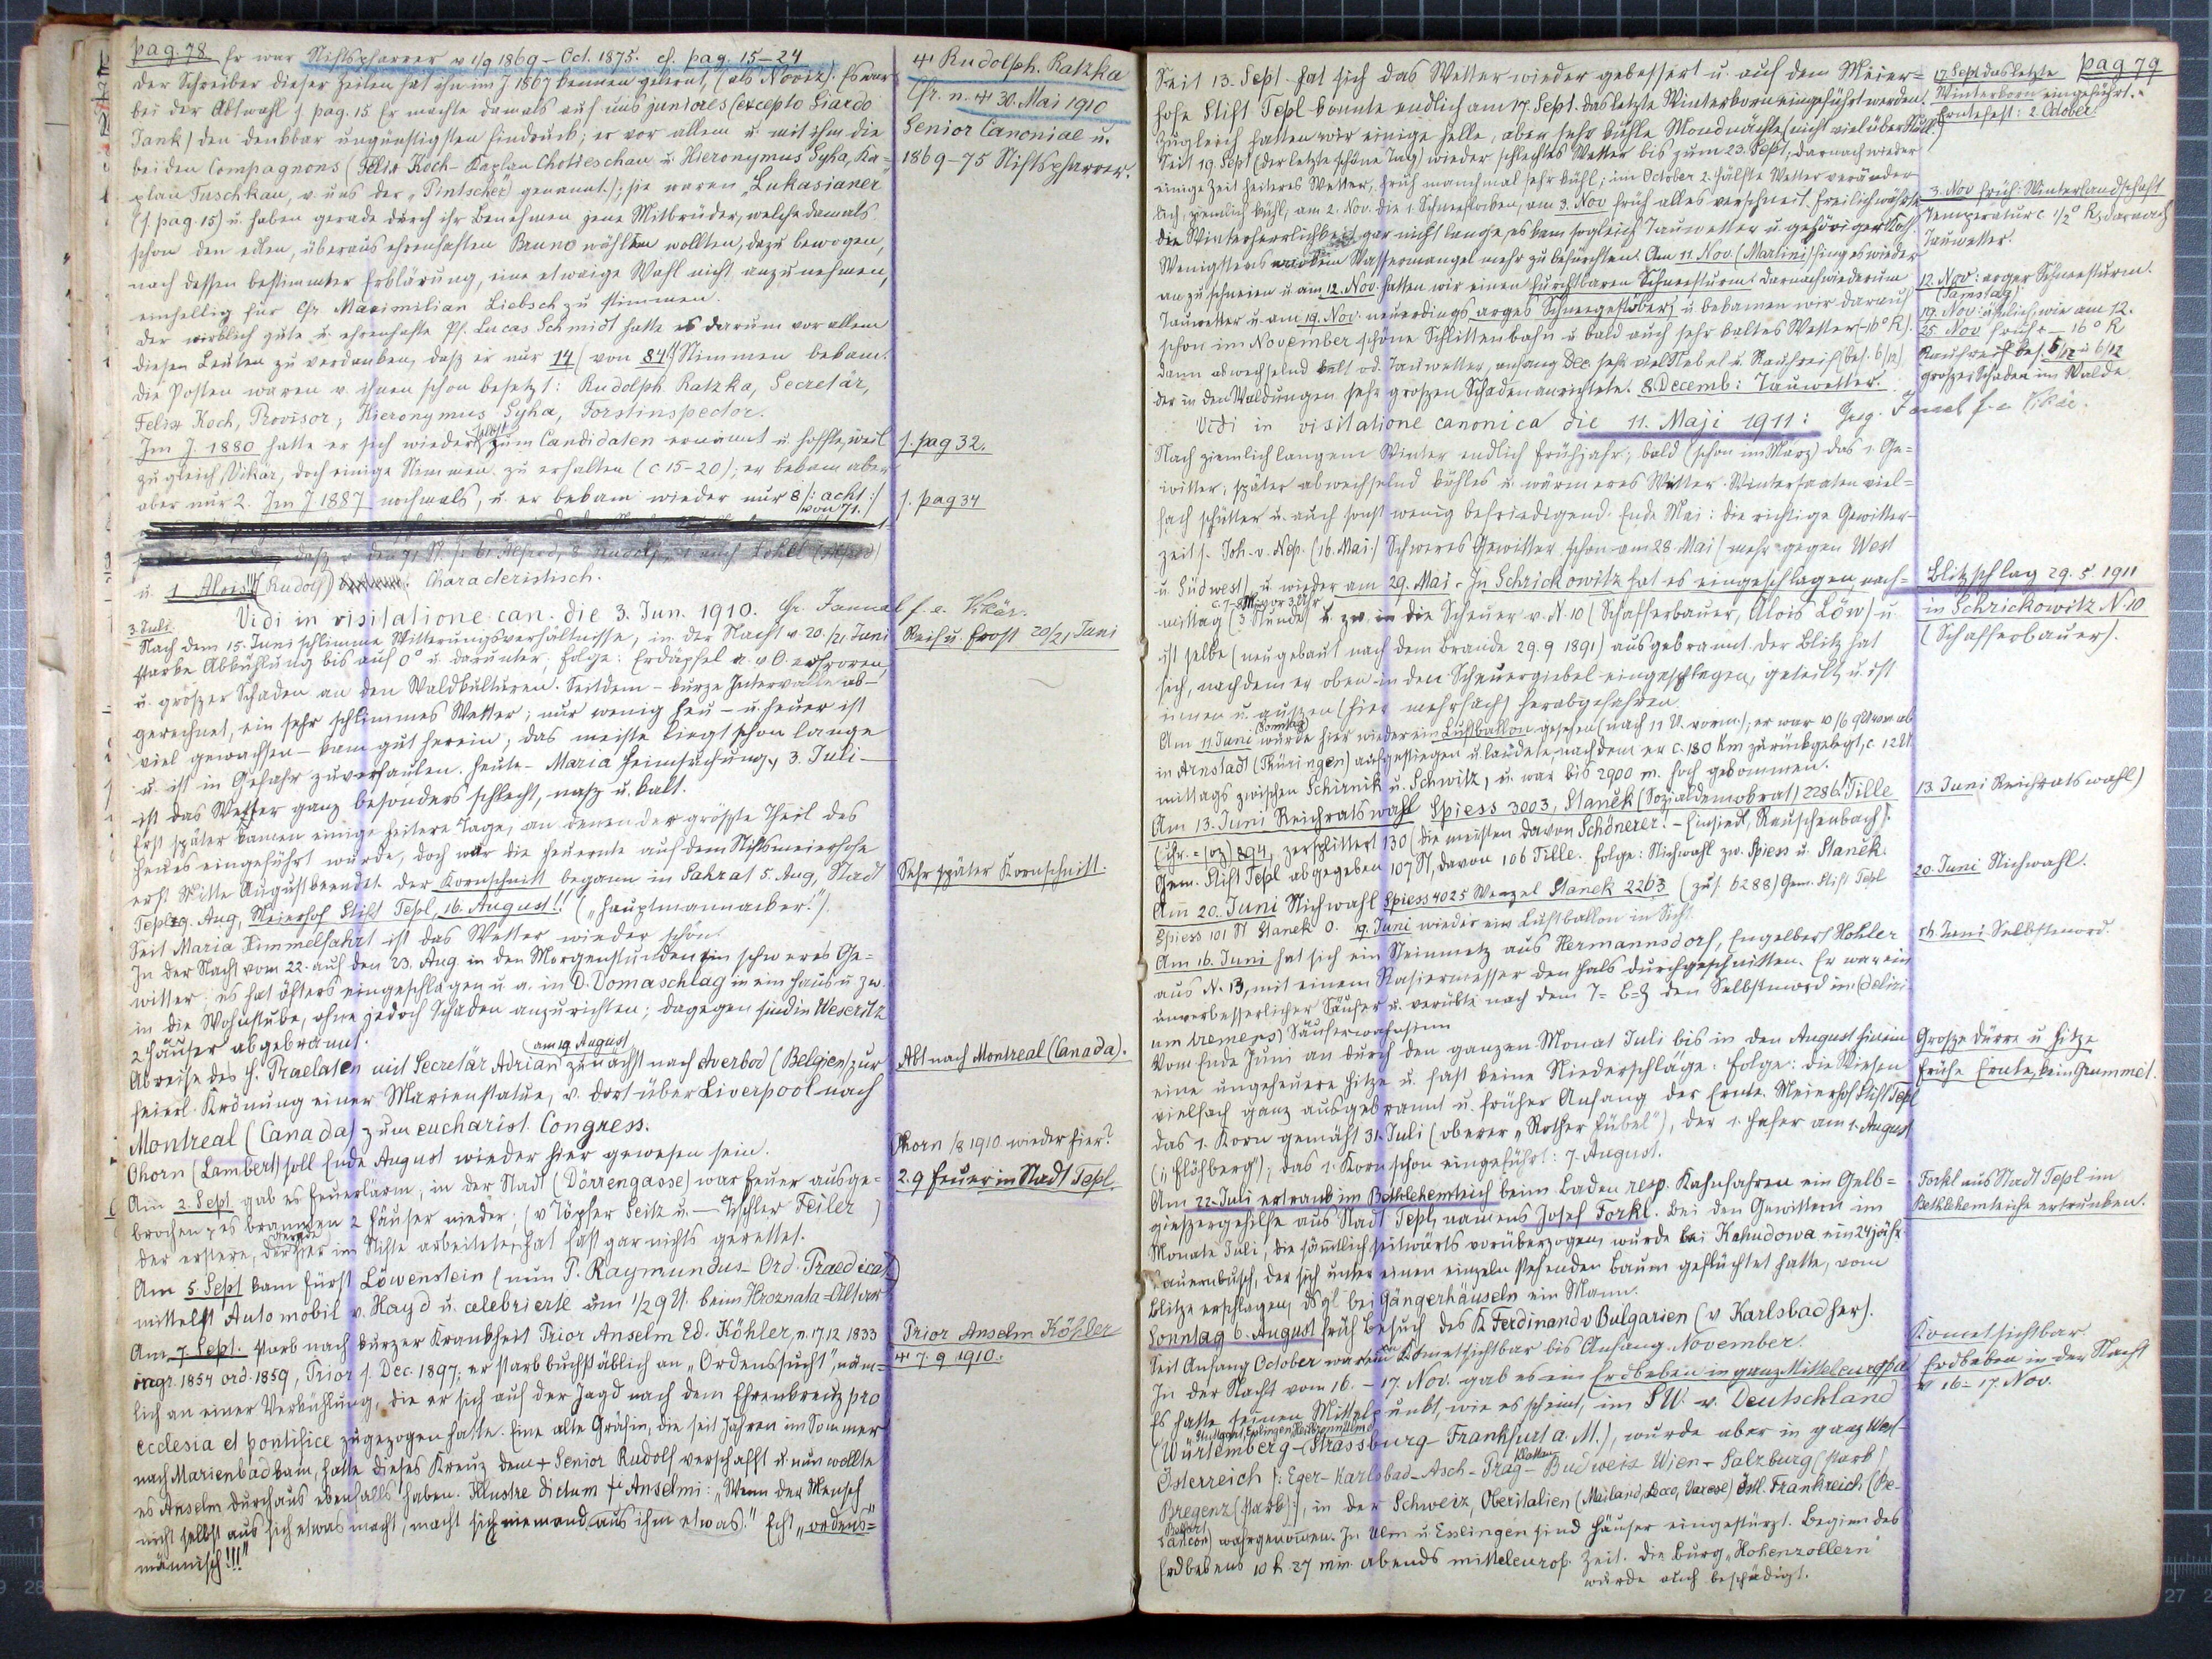 pag. 78 Er war Stiftspfarrer v 1/9 1869 – Oct. 1875. cf. pag. 15–24
Der Schreiber dieser Zeilen hat ihn im J 1867 kennen gelernt, (als Noviz). Es war
bei der Abtwahl s. pag. 15. Er machte damals auf uns juniores (excepto Siardo
Tank) den denkbar ungünstigsten Eindruck; er vor allem u. mit ihm die
beiden Compagnons (Felix Koch – Kaplan Chotieschau u. Hieronymus Syha, Ka=
plan Tuschkau, v. uns der „Pintscher" genannt.); sie waren „Lukasianer"
(s. pag. 15) u. haben gerade durch ihr Benehmen jene Mitbrüder, welche damals
schon den edlen, überaus ehrenhaften Bruno wählen wollten, dazu bewogen,
nach dessen bestimmter Erklärung, eine etwaige Wahl nicht anzunehmen,
einhellig für Hr. Maximilian Liebsch zu stimmen.
Der wirklich gute u. ehrenhafte Pf. Lucas Schmidt hatte es darum vor allem
diesen Leuten zu verdanken, dasz er nur 14 (von 84!) Stimmen bekam.
Die Posten waren v. ihnen schon besetzt: Rudolph Ratzka, Secretär,
Felix Koch, Provisor, Hieronymus Syha, Forstinspector.
Im J. 1880 hatte er sich wieder selbst zum Candidaten ernannt u. hoffte, weil
zugleich Vikär, doch einige Stimmen zu erhalten (c 15–20); er bekam aber
aber nur 2. Im J 1887 nochmals, u. er bekam wieder nur 8 /: acht :/
von 71.!
u. 1 Alois!!! (Rudolf) Characteristisch.
Vidi in visitatione can. die 3. Jun. 1910. Gr. Januel f. e. Vikär.
3. Juli.
Nach dem 15. Juni schlimme Witterungsverhältnisse, in der Nacht v. 20./21. Juni
starke Abkühlung bis auf 0° u. darunter; Folge: Erdäpfel a. v. O. erfroren,
u. groszer Schaden an den Waldkulturen. Seitdem – kurze Intervalle ab–
gerechnet, ein sehr schlimmes Wetter; nur wenig Heu – u. heuer ist
viel gewachsen – kam gut herein, das meiste liegt schon lange
u. ist in Gefahr zu verfaulen. Heute – Maria Heimsuchung, 3. Juli –
ist das Wetter ganz besonders schlecht, nasz u. kalt.
Erst später kamen einige heitere Tage, an denen der gröszte Theil des
Heues eingeführt wurde, doch war die Heuernte auf dem Stiftsmeierhofe
erst Mitte August beendet. Der Kornschnitt begann in Sahrat 5. Aug, Stadt
Tepl 9. Aug, Meierhof Stift Tepl, 16. August!! („Hauptmannacker!").
Seit Maria Himmelfahrt ist das Wetter wieder schön.
In der Nacht vom 22. auf den 23. Aug. in den Morgenstunden ein schweres Ge=
witter: es hat öfters eingeschlagen u. a. in D. Domaschlag in ein Haus u. zw.
in die Wohnstube, ohne jedoch Schaden anzurichten; dagegen sind in Weseritz
2 Häuser abgebrannt.
am 19 August
Abreise des H. Praelaten mit Secretär Adrian zunächst nach Averbod (Belgien) zur
feierl. Krönung einer Marienstatue, v. dort über Liverpool nach
Montreal (Canada) zum eucharist. Congress.
Ohorn (Lambert) soll Ende August wieder hier gewesen sein.
Am 2. Sept gab es Feuerlärm, in der Stadt (Dörrengasse) war Feuer ausge=
brochen; es brannten 2 Häuser nieder; (v Töpfer Seitz u. — Tischler Feiler)
der erstere, der gerade hier im Stifte arbeitete, hat fast gar nichts gerettet.
Am 5. Sept kam Fürst Löwenstein (nun P. Raymundus – Ord. Praedicat.)
mittelst Automobil v. Hayd u. celebrierte um 1/2 9 U. beim Hroznata=Altar
Am 7. Sept. starb nach kurzer Krankheit Prior Anselm Ed. Köhler, n. 17.12 1833
ingr. 1854 ord. 1859, Prior 1. Dec. 1897; er starb buchstäblich an „Ordenssucht", näm=
lich an einer Verkühlung, die er sich auf der Jagd nach dem Ehrenkreuz pro
ecclesia et pontifice zugezogen hatte. Eine alte Gräfin, die seit Jahren im Sommer
nach Marienbad kam, hatte dieses Kreuz dem + Senior Rudolf verschafft u. nun wollte
es Anselm durchaus ebenfalls haben. Illustre dictum + Anselmi: „Wenn der Mensch
nicht selbst aus sich etwas macht, macht sich niemand aus ihm etwas." Echt „ordens=
männisch!!!"
+ Rudolph. Ratzka
Gr. n. + 30. Mai 1910
Senior Canoniae u.
1869–75 Stiftspfarrer.
s. pag 32.
s. pag 34
Reif u. Frost 20/21 Juni
Sehr später Kornschnitt.
Abt nach Montreal (Canada).
Ohorn /8 1910 wieder hier?
2.9 Feuer in Stadt Tepl.
Prior Anselm Köhler
+ 7. 9 1910.
pag 79
Seit 13. Sept. hat sich das Wetter wieder gebessert u. auf dem Meier=
hofe Stift Tepl konnte endlich am 17. Sept. das letzte Winterkorn eingeführt werden.
Zugleich hatten wir einige helle, aber sehr kühle Mondnächte (nicht viel über Null.)
Seit 19. Sept (der letzte schöne Tag) wieder schlechtes Wetter bis zum 23. Sept; darnach wieder
einige Zeit heiteres Wetter, früh manchmal sehr kühl; im October 2. Hälfte Wetter veränder
lich, ziemlich kühl, am 2. Nov. die 1. Schneeflocken, am 3. Nov früh alles verschneit. Freilich währte
die Winterherrlichkeit gar nicht lange, es kam sogleich Tauwetter u. gehöriger Kot.
Wenigstens war kein Wassermangel mehr zu befürchten. Am 11. Nov. (Martini) fing es wieder
an zu schneien u. am 12. Nov. hatten wir einen furchtbaren Schneesturm. Darnach wiederum
Tauwetter u. am 19. Nov. neuerdings arges Schneegestöber; u. bekamen wir darauf
schon im November schöne Schlittenbahn u bald auch sehr kaltes Wetter (–16° R).
Dann abwechselnd kalt od. Tauwetter, anfang Dec. sehr viel Nebel u. Rauhreif (bes. 6/12)
der in den Waldungen sehr groszen Schaden anrichtete. 8. Decemb: Tauwetter.
Vidi in visitatione canonica die 11. Maji 1911: Greg. Januel f. e. Vikär.
Nach ziemlich langem Winter endlich Frühjahr; bald (schon im März) das 1. Ge=
witter; später abwechselnd kühles u. wärmeres Wetter. Wintersaaten viel=
fach schütter u. auch sonst wenig befriedigend. Ende Mai: die richtige Gewitter–
zeit s. Joh. v. Nep. (16. Mai.) Schweres Gewitter schon am 28. Mai (mehr gegen West
u. Südwest) u. wieder am 29. Mai. In Schrickowitz hat es eingeschlagen nach=
mittag (3. Stunde) u. zw. in die Scheuer v. N. 10 (Schafferbauer, Alois Löw) u.
ist selbe (neu gebaut nach dem Brande 29.9 1891) ausgebrannt. Der Blitz hat
sich, nachdem er oben in den Scheuergiebel eingeschlagen, geteilt, u. ist
innen u. auszen (hier mehrfach) herabgefahren.
Am 11. Juni (Sonntag) wurde hier wieder ein Luftballon gesehen (nach 11 U. vorm.); er war 10/6 9 U vorm ab
in Arnstadt (Thüringen) aufgestiegen u. landete, nachdem er c. 180 km zurückgelegt, c. 12 U.
mittags zwischen Schirnik u. Schwitz, u. war bis 2900 m. hoch gekommen.
Am 13. Juni Reichratswahl Spiess 3003, Stanek (Sozialdemokrat) 2286! Tille
(chr. = soz) 894, zersplittert 130 (die meisten davon Schönerer! – Einsiedl, Rauschenbach).
Gem. Stift Tepl abgegeben 107 St, davon 106 Tille. Folge: Stichwahl zw. Spiess u. Stanek.
Am 20. Juni Stichwahl Spiess 4025 Wenzel Stanek 2263 (zus. 6288) Gem. Stift Tepl
Spiess 101 St Stanek 0. 19. Juni wieder ein Luftballon in Sicht.
Am 16. Juni hat sich ein Steinmetz aus Hermannsdorf, Engelbert Hohler
aus N. 13, mit einem Rasiermesser den Hals durchgeschnitten. Er war ein
unverbesserlicher Säufer u. verübte nach dem den Selbstmord im (deliri
um tremens) Säuferwahnsinn
Vom Ende Juni an durch den ganzen Monat Juli bis in den August hinein
eine ungeheuere Hitze u. fast keine Niederschläge. Folge: die Wiesen
vielfach ganz ausgebrannt u. früher Anfang der Ernte. Meierhof Stift Tepl
das 1. Korn gemäht 31. Juli (oberer „Rother Hübel"), der 1. Hafer am 1. August
(„Flöhberg"); das 1. Korn schon eingeführt: 7. August.
Am 22. Juli ertrank im Bethlehemteich beim Baden resp. Kahnfahren ein Gelb=
gieszergehilfe aus Stadt Tepl, namens Josef Forkl. Bei den Gewittern im
Monate Juli, die sämtlich seitwärts vorüberzogen, wurde bei Kahudowa ein 24jähr.
Bauernbursch, der sich unter einen einzeln stehenden Baum geflüchtet hatte, vom
Blitze erschlagen, dsgl. bei Gängerhäuseln ein Mann.
Sonntag 6. August früh Besuch des K. Ferdinand v Bulgarien (v Karlsbad her).
Seit Anfang October war ein Komet sichtbar bis Anfang November.
In der Nacht vom 16. – 17. Nov. gab es ein Erdbeben in ganz Mitteleuropa
Es hatte seinen Mittelpunkt, wie es scheint, im SW. v. Deutschland
Stuttgart, Eslingen, Heilbronn, Ulm
(Würtemberg – Strassburg – Frankfurt a. M.), wurde aber in ganz West-
Österreich /: Eger – Karlsbad – Asch – Prag – Klattau – Budweis Wien – Salzburg (stark)
Bregenz (stark) :/, in der Schweiz, Oberitalien (Mailand, Lecco, Varese) östl. Frankreich (Be-
sançon) wahrgenommen. In Ulm u Esslingen sind Häuser eingestürzt. Beginn des
Erdbebens 10 h 27 min. abends mitteleurop. Zeit. Die Burg „Hohenzollern"
wurde auch beschädigt.
17. Sept das letzte
Winterkorn eingeführt.
Erntefest: 2. October
3. Nov früh: Winterlandschaft
Temperatur c 1/2° R, darnach
Tauwetter.
12. Nov: arger Schneesturm.
(Samstag)
19. Nov: ähnlich wie am 12.
25. Nov früh – 16° R
Rauhreif bes. 5/12 u 6/12
groszer Schaden im Walde
Blitzschlag 29. 5 1911
in Schrickowitz N. 10
(Schafferbauer).
13. Juni Reichratswahl)
20. Juni Stichwahl.
16. Juni Selbstmord.
Grosze Dürre u Hitze
frühe Ernte, kein Grummet.
Forkl aus Stadt Tepl im
Bethlehemteiche ertrunken.
Komet sichtbar
Erdbeben in der Nacht
v 16–17. Nov.